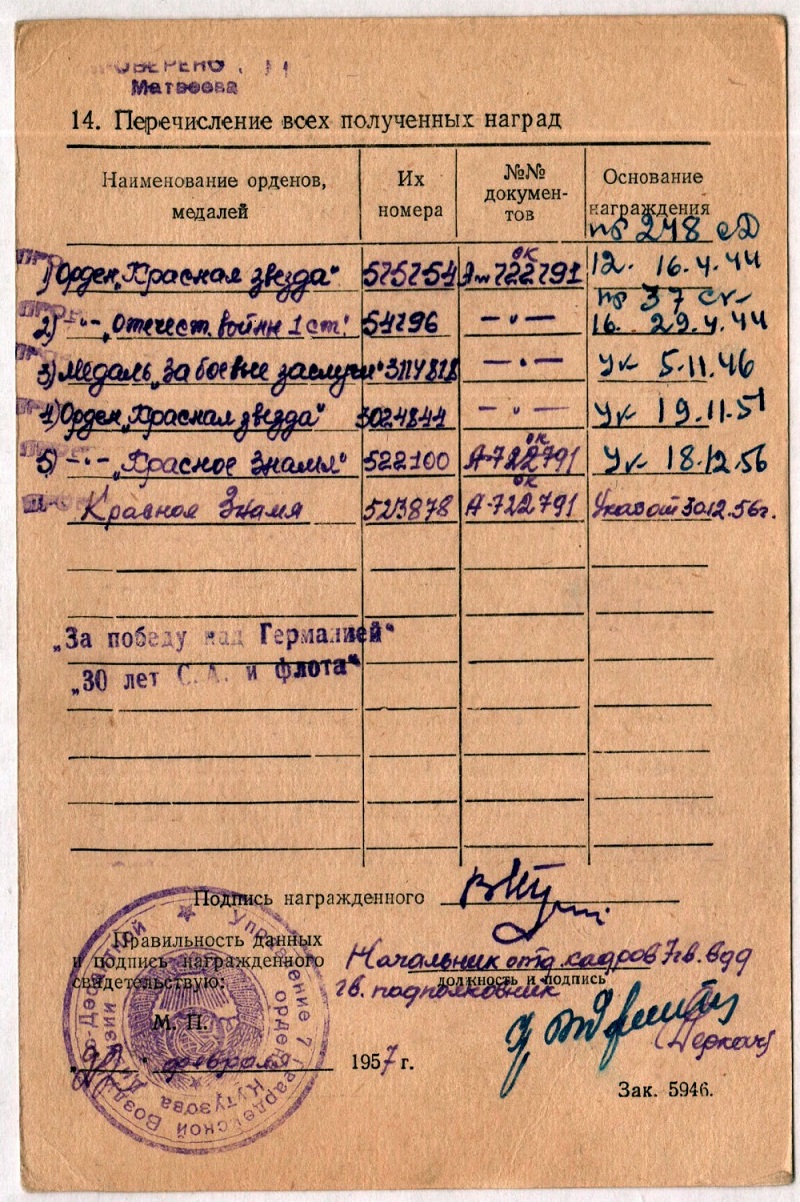 ПРОВЕРЕНО
Матвеева
14. Перечисление всех полученных наград
Наименование орденов, медалей
Их номера
№№ документов
Основание награждения
1) Орден „Красная звезда" 575754 722791 пр 278 сд 12. 16.4.44
2) -"- „Отечест. войны 1 ст." 54796 -"- пр 37 ск 16. 29.4.44
3) Медаль „За боевые заслуги" 3114818 -"- Ук 5.11.46
4) Орден „Красная звезда" 3024844 -"- Ук 19.11.51
5) -"- „Красное Знамя" 522100 ОК А-722791 Ук 18.12.56
Красное Знамя 523878 ОК А-722791 Указ от 30.12.56г.
„За победу над Германией"
„30 лет С. А. и флота"
Подпись награжденного
Правильность данных
и подпись награжденного
свидетельствую:
Начальник отд. кадров 7 гв. вдд
должность и подпись
гв. подполковник
(Деркач)
М. П.
февраля 1957 г.
Управление 7 Гвардейской Воздушно-Десантной ордена Кутузова дивизии
Зак. 5946.